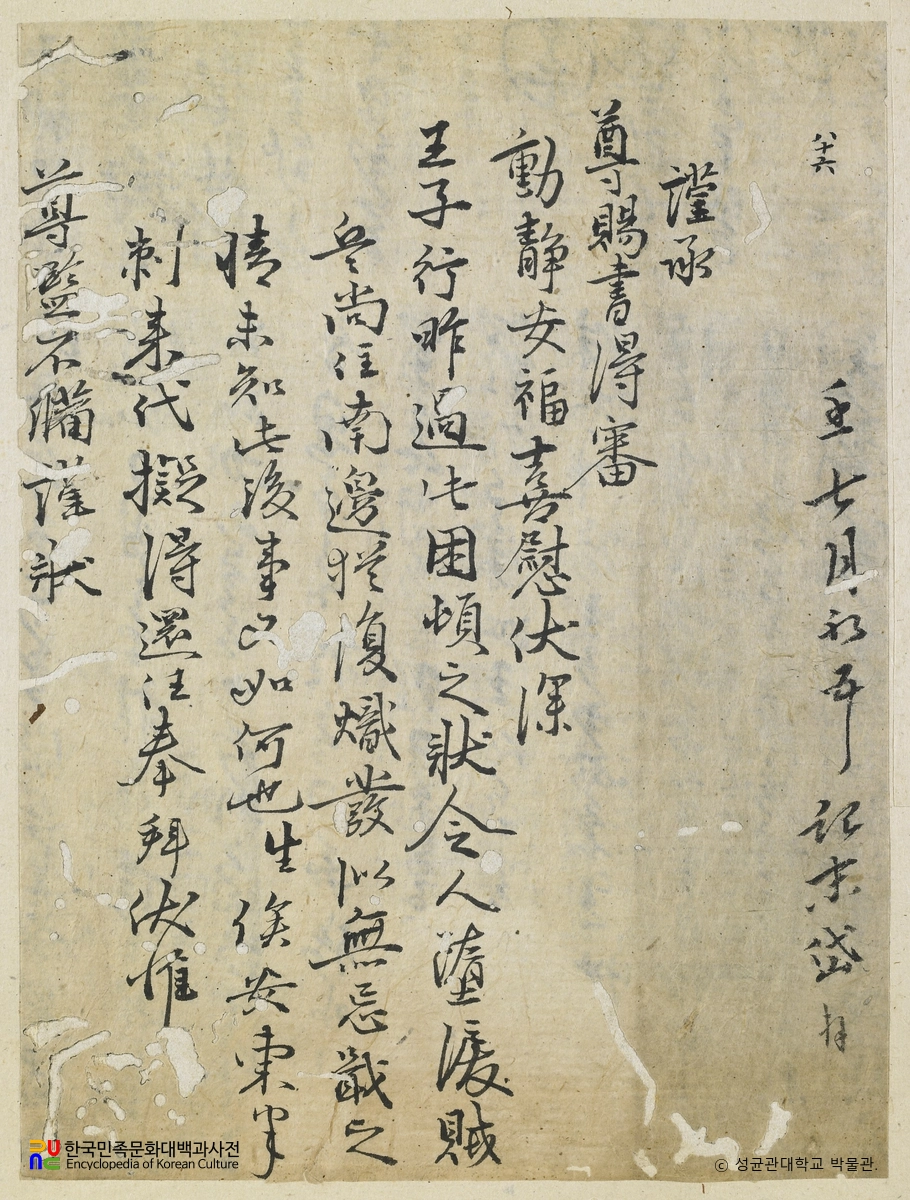 八十六
壬 七月初五 記末岱 拜
謹承
尊賜書得審
動靜安福喜慰伏深
王子行昨過此困頓之狀令人墮淚賊
兵尚住南邊 復熾發似無忌戢之
情未知此後事 如何也生俟安東
刺來代擬得還往奉拜伏惟
尊鑑不備謹狀
한국민족문화대백과사전
Encyclopedia of Korean Culture
ⓒ 성균관대학교 박물관.